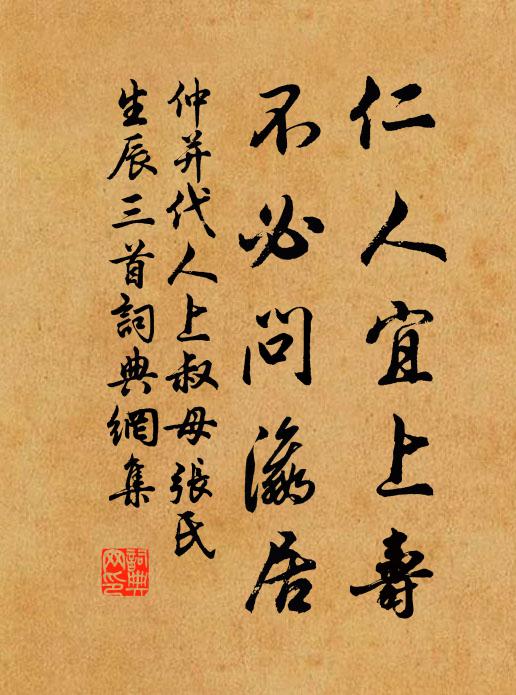 仁人宜上壽
不必問瀛居
仲并代人上叔母張氏
生辰三首詞典網集
詞典網印